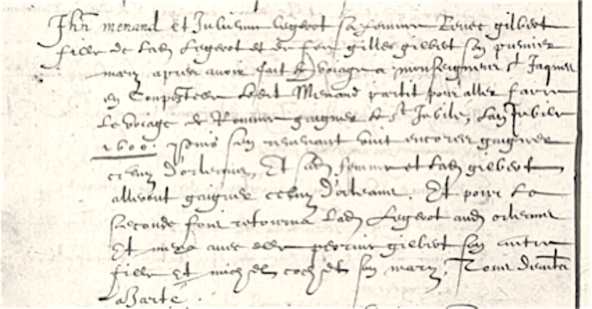 Jhn menand et Julienne Legerot sa femme Renee gilbert
fille de lad Legerot et de feu gilles gilbert son premier
mary apres avoir fait le voiage a monseigneur st Jaques
en Compostelle ledit Menand partit pour aller faire
le voiage de Romme gaigner le st Jubile, Lan Jubile
1600. puis son revenant vint encores gaigner
celuy d'orleans, Et sad femme et lad gilbert
allerent gaigner celuy d'orleans. Et pour la
seconde fois retourna lad Legerot aud orleans
Et mena avec elle perrine gilbert son autre
fille et michel cochet son mary. Tous